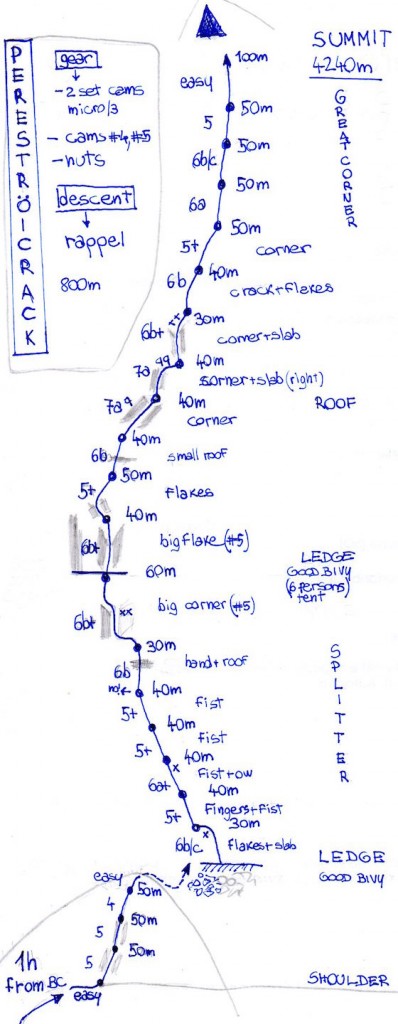 SUMMIT
4240m
PERESTRÖICRACK
gear
- 2 set cams
micro/3
- cams #4, #5
- nuts
descent
rappel
800m
100m
easy
GREAT CORNER
50m
5
50m
6b/c
50m
6a
50m
5+
corner
40m
6b
crack+flakes
30m
6b+
corner+slab
40m
7a
corner+slab (right)
40m
ROOF
7a
corner
40m
6b
small roof
50m
5+
flakes
40m
6b+
big flake (#5)
LEDGE
GOOD BIVY
(6 persons)
tent
60m
6b+
xx
big corner (#5)
30m
SPLITTER
6b
hand+roof
40m
5+
fist
40m
5+
fist
40m
x
6a+
Fist+ow
40m
5+
Fingers+fist
30m
x
6b/c
flakes+slab
LEDGE
GOOD BIVY
easy
50m
4
50m
5
50m
5
1h
from BC
easy
SHOULDER